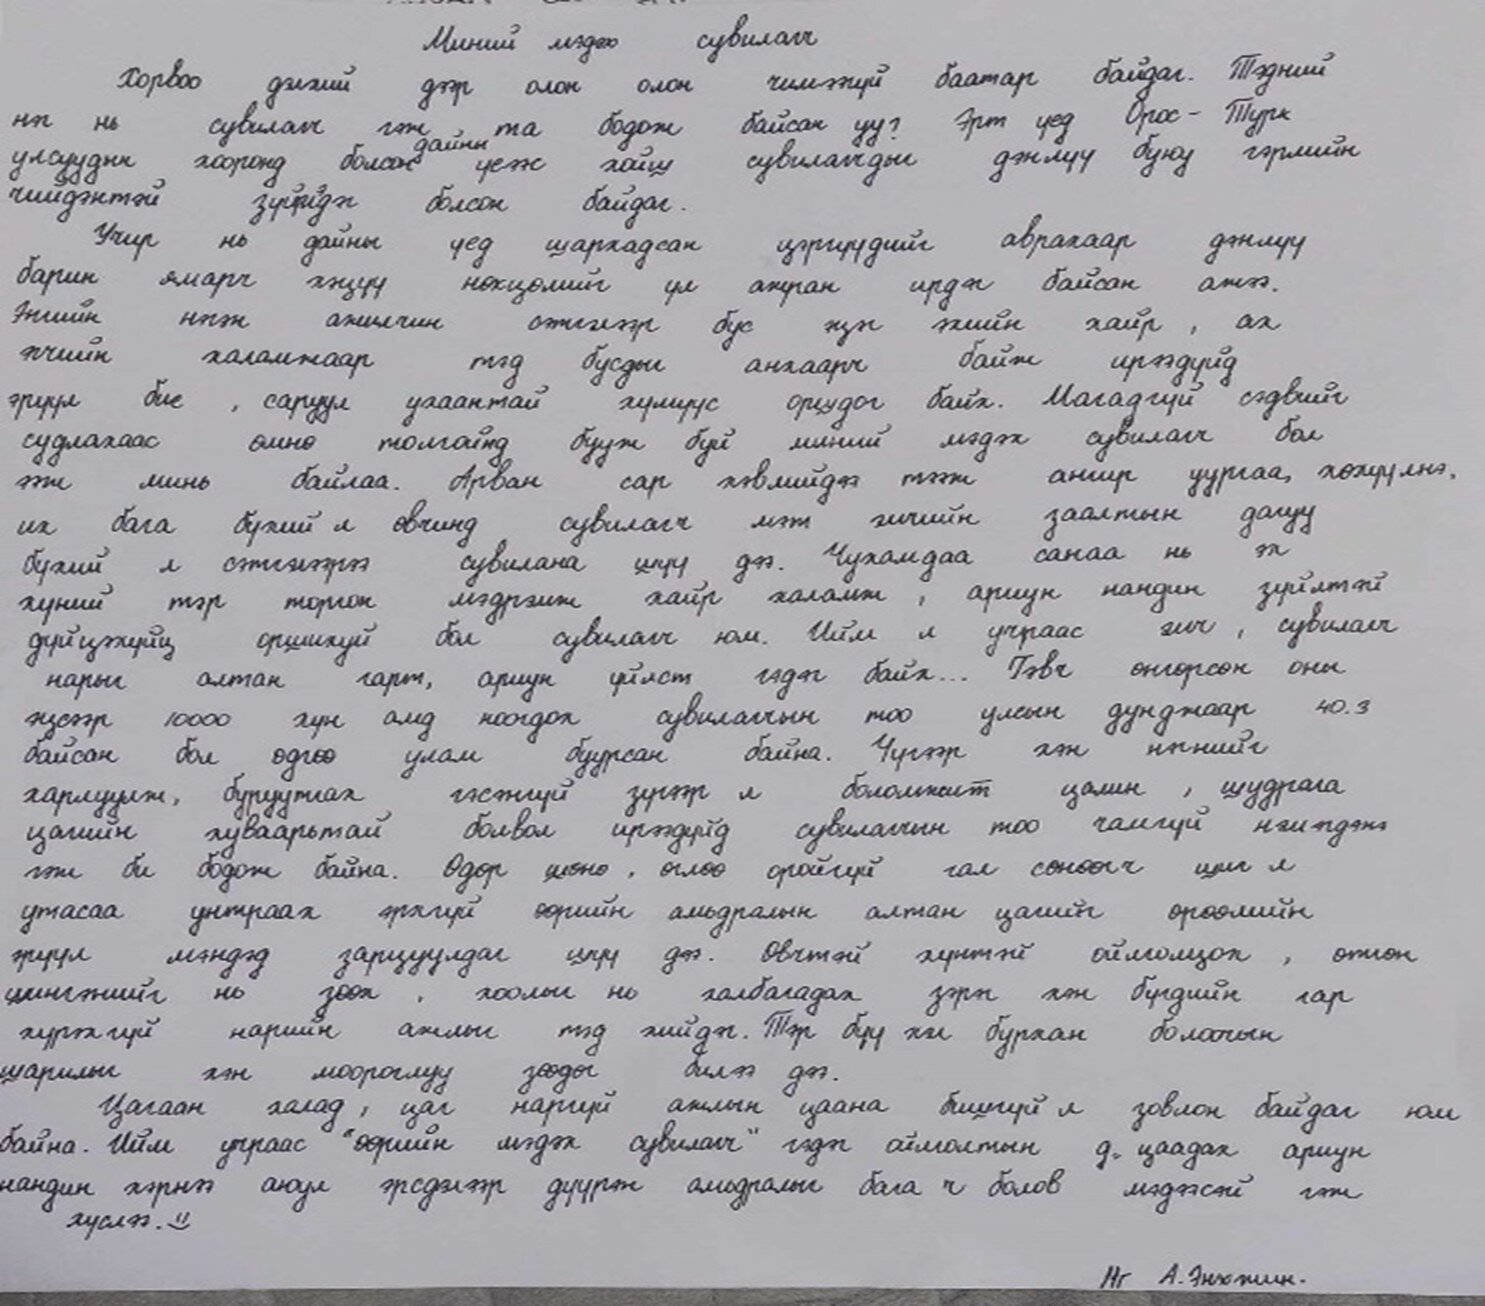 Миний мэдэх сувилагч
Хорвоо дэлхий дээр олон олон чимээгүй баатар байдаг. Тэдний
нэг нь сувилагч гэж та бодож байсан уу? Эрт үед Орос - Турк
улсуудын хооронд болсон дайны үеэс хойш сувилагчдыг дэнлүү буюу гэрлийн
чийдэнтэй зүйрлэдэг болсон байдаг.
Учир нь дайны үед шархадсан цэргүүдийг аврахаар дэнлүү
барин ямарч хэцүү нөхцөлийг үл ажран ирдэг байсан ажээ.
Энгийн нэгэн ажилчин сэтгэлээр бус эцэг эхийн хайр, ах
эгчийн халамжаар тэд бусдыг анхаарч байж ирээдүйд
эрүүл бие, саруул ухаантай хүмүүс оршдог байх. Магадгүй сэдвийг
судлахаас өмнө толгойнд бууж буй миний мэдэх сувилагч бол
ээж минь байлаа. Арван сар хэвлийдээ тээж ангир уургаа, хөхүүлнэ.
их бага бүхий л өвчинд сувилагч мэт эмчийн заалтын дагуу
бүхий л сэтгэлээрээ сувилана шүү дээ. Чухамдаа санаа нь эх
хүний тэр торгон мэдрэмж хайр халамж, ариун нандин зүйлтэй
дүйцэхүйц оршихуй бол сувилагч юм. Ийм л учраас эмч, сувилагч
нарыг алтан гарт, ариун үйлст гэдэг байх... Гэвч өнгөрсөн оны
эцсээр 10000 хүн амд ноогдох сувилагчын тоо улсын дунджаар 40.3
байсан бол одгоо улам буурсан байна. Чүгээр хэн нэгнийг
харлуулж, буруутгах гэсэнгүй зүгээр л боломжит цалин, шудрага
цагийн хуваарьтай болвол ирээдүйд сувилагчын тоо чамгүй нэмэгдэнэ
гэж би бодож байна. Өдөр шөнө, өглөө оройгүй гал сөнөөгч шиг л
утасаа унтраах эрхгүй өөрийн амьдралын алтан цагийг өрөөлийн
эрүүл мэндэд зарцуулдаг шүү дээ. Өвчтэй хүнтэй ойлголцох, өтгөн
шингэнийг нь зөөх, хоолыг нь халбагадах зэрэг хэн бүгдийн гар
хүрэхгүй нарийн ажлыг тэд хийдэг. Тэр бүү хэл бурхан болоочын
шарилыг хэн моороглуу зөөдөг билээ дээ.
Цагаан халад, цаг наргүй ажлын цаана бишгүй л зовлон байдаг юм
байна. Ийм учраас "өөрийн мэдэх сувилагч" гэдэг ойлголтын д. цаадах ариун
нандин хэрнээ аюул эрсдэлээр дүүрэн амьдралыг бага ч болов мэдээсэй гэж
хүслээ.
Нг А. Энхжин.